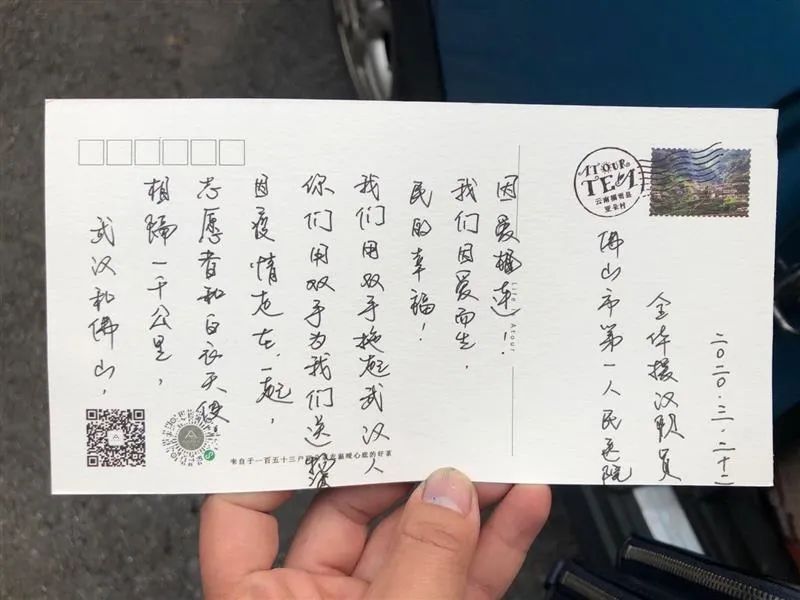 武汉和佛山，
相隔一千公里，
志愿者和白衣天使
因疫情走在一起，
你们用双手为我们送
我们用双手托起武汉人
民的幸福！
我们因爱而生，
因爱相连！
Atour
佛山市第一人民医院
全体援汉职员
二〇二〇.三.二十二
ATOUR
TEA
云南福贡县
亚朵村
来自于一百五十三户 温暖心底的好茶